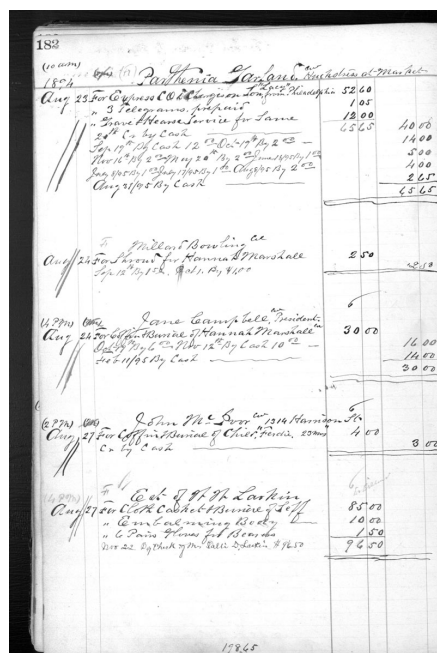 182
(10 a.m.)
1894 Parthenia Garland, Huckstress at Market
Aug 23 For Express C.O.D. charges on Son from Philadelphia 52 60
" 3 Telegrams, prepaid 1 05
" Grave & Hearse Service for Same 12 00
Cr by Cash 65 65 40 00
Sep. 19th By Cash 12 00 Oct 19th By 2 00 14 00
Nov 16th By 2 00 May 20th By 2 00 June 18/95 By 1 00 5 00
July 8/95 By 1 00 July 17/95 By 1 00 Aug 8/95 By 2 00 4 00
Aug 31/95 By Cash 2 65
65 65
Willard Bowling
Aug 24 For Shroud for Hannah Marshall 2 50
Sep 12th By
2 50
(4 P.M.) Jane Campbell, President
Aug 24 For Coffin & Burial of Hannah Marshall 30 00
Oct 9 By 6 00 Nov 12th By Cash 10 00 16 00
Feb 10/95 By Cash 14 00
30 00
(2 P.M.) John McIvor 1314 Harrison St.
Aug 27 For Coffin & Burial of Child, 4 00
Cr by Cash 3 00
Est of W. W. Larkin
Aug 27 For Cloth Casket & Burial of Self 85 00
" Embalming Body 10 00
" 6 Pairs Gloves for Bearers 1 50
Nov 22 By Check of Mrs D. Larkin $96.50 96 50
178.65